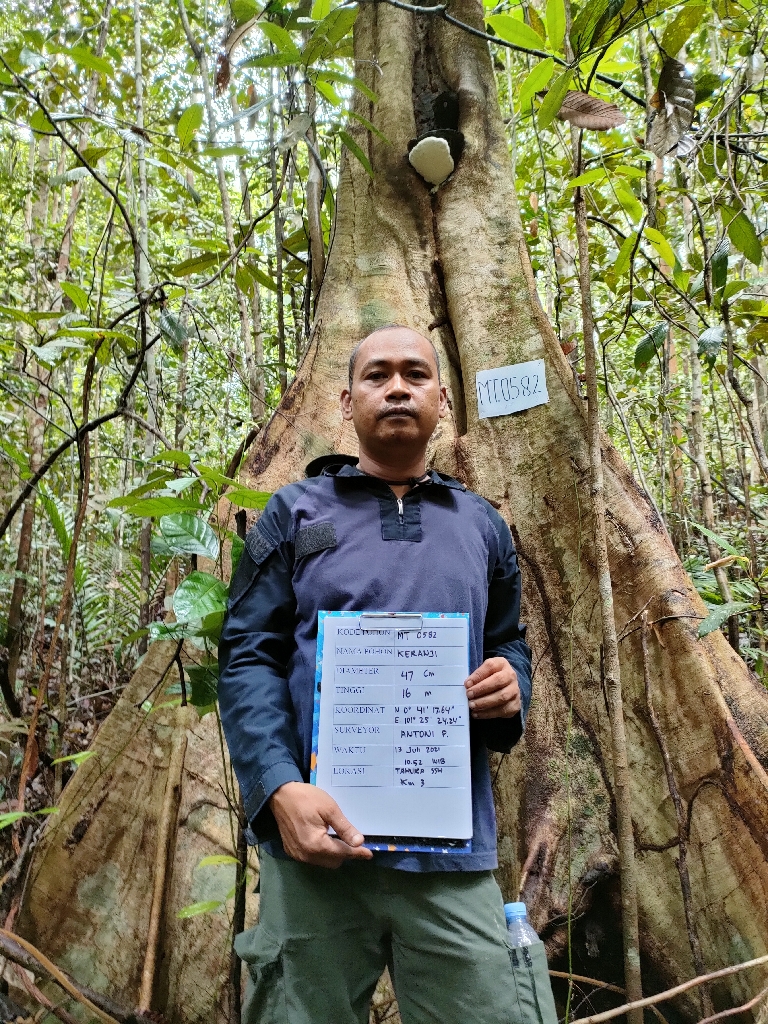 MT.0582
KODE POHON MT 0582
NAMA POHON KERANJI
DIAMETER 47 Cm
TINGGI 16 m
KOORDINAT N 0° 41' 17.64"
E. 101° 25' 24.24"
SURVEYOR ANTONI P.
WAKTU 13 Juli 2021
10.52 WIB
LOKASI TAHURA SSH
Km 3